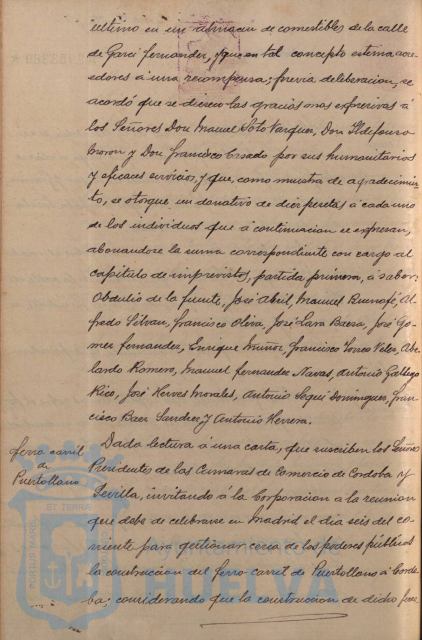 ultimo en un almacen de comestibles de la calle
de Garci Fernandez, y que en tal concepto estima acre-
edores á una recompensa; previa deliberacion, se
acordó que se diesen las gracias mas expresivas á
los Señores Don Manuel Soto Vazquez, Don Ildefonso
Moron y Don Francisco Casado por sus humanitarios
y eficaces servicios, y que, como muestra de agradecimien-
to, se otorgue un donativo de diez pesetas á cada uno
de los individuos que á continuacion se expresan,
abonandose la suma correspondiente con cargo al
capitulo de imprevistos, partida primera, á saber:
Obdulio de la Fuente, José Abril, Manuel Al-
fredo Silvan, Francisco Oliva, José Lara Baera, José Go-
mez Fernandez, Enrique Muñoz, Francisco Velez, Abe-
lardo Romero, Manuel Fernandez Navas, Antonio Gallego
Rico, José Morales, Antonio Sequi Dominguez, Fran-
cisco Baez Sandez y Antonio Herrera.
ferro carril
de
Puertollano
Dada lectura á una carta, que suscriben los Señores
Presidentes de las Camaras de Comercio de Cordoba y
Sevilla, invitando á la Corporacion a la reunion
que debe de celebrarse en Madrid el dia seis del co-
rriente para gestionar cerca de los poderes publicos
la construccion del ferro carril de Puertollano á Cordo-
ba; considerando que la construccion de dicho ferro
PORTUS MARIS ET TERRAE CUSTODIA
HUELVA